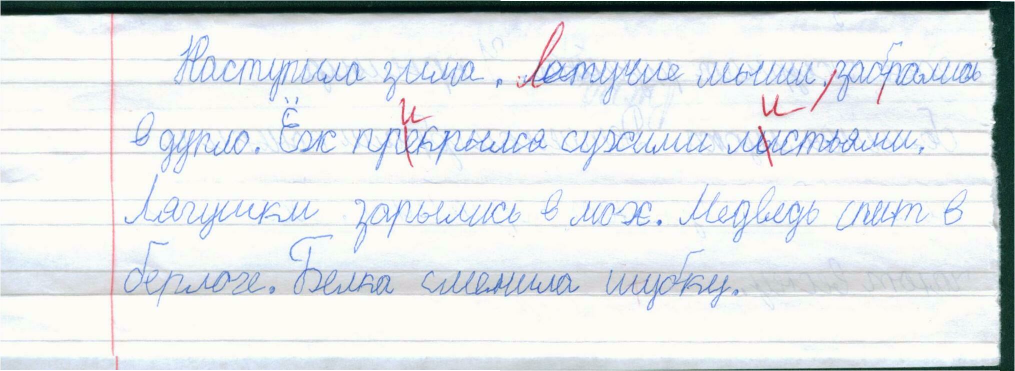 Наступила зима. Летучие мыши, забрались
в дупло. Ёж прикрылса сухими листьями.
Лягушки зарылись в мох. Медведь спит в
берлоге. Белка сменила шубку.